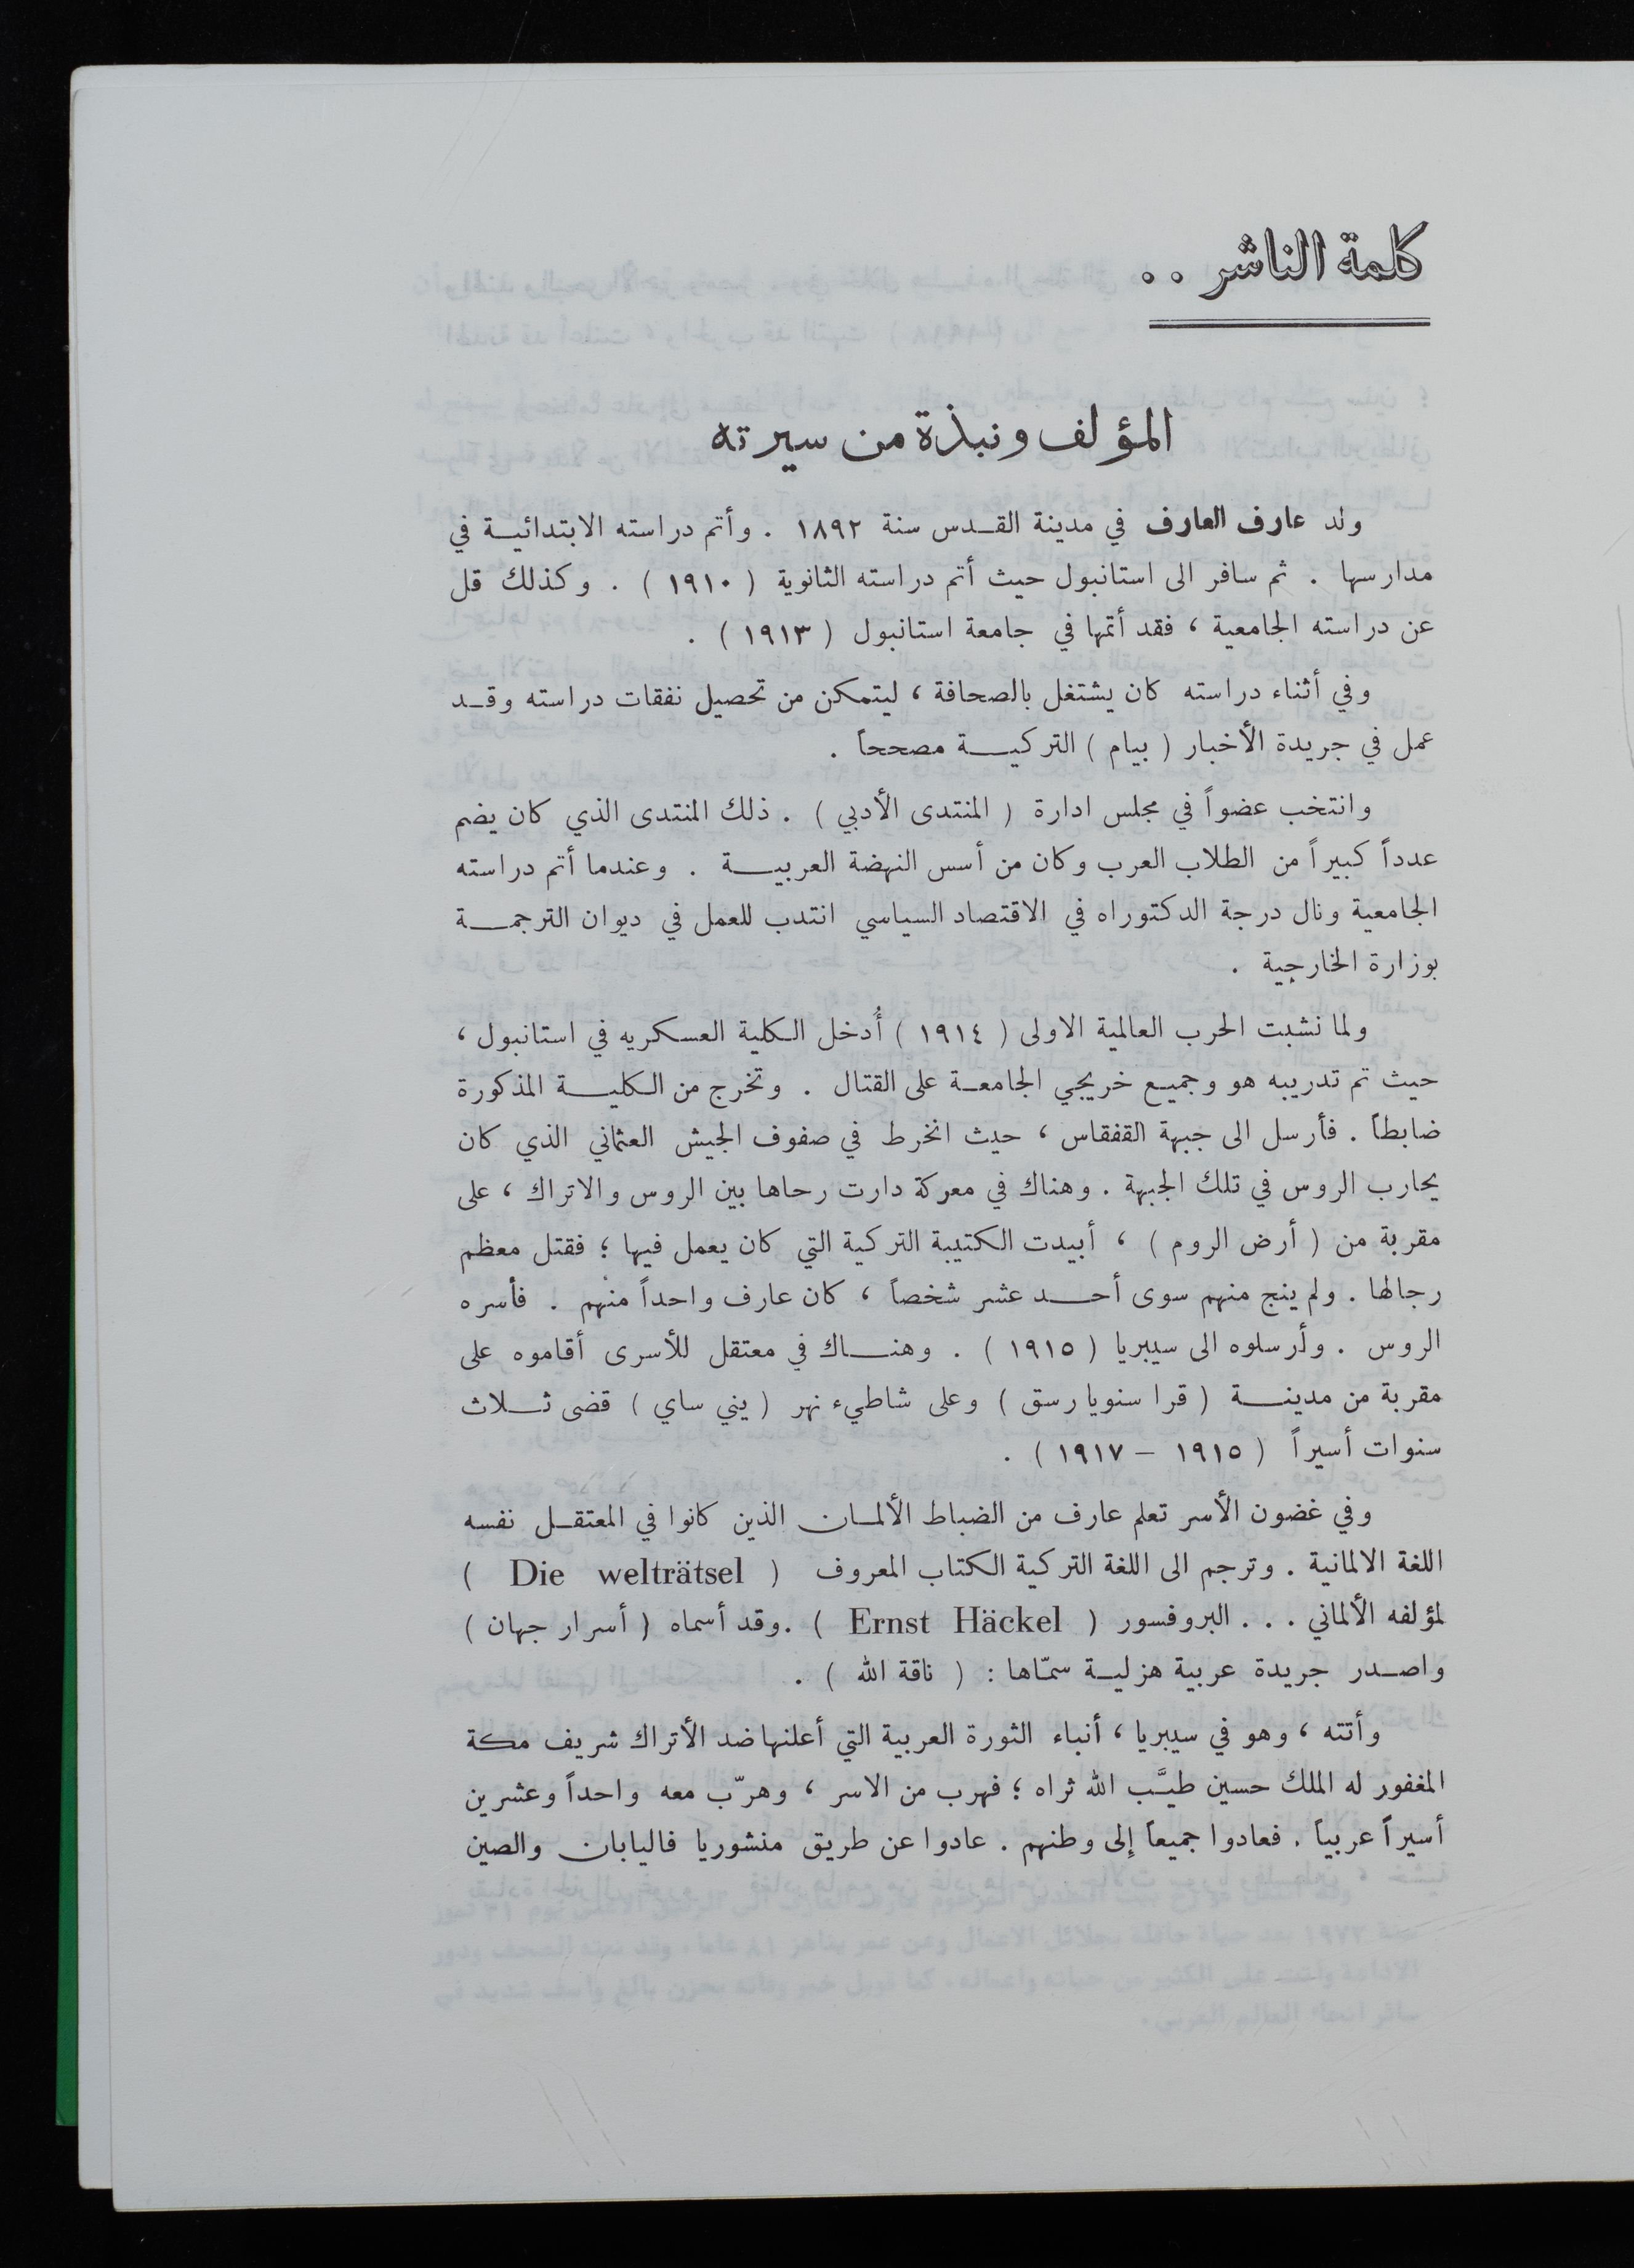 كلمة الناشر . .
المؤلف ونبذة من سيرته
ولد عارف العارف في مدينة القدس سنة ١٨٩٢ . وأتم دراسته الابتدائية في
مدارسها . ثم سافر الى استانبول حيث أتم دراسته الثانوية ( ١٩١٠ ) . وكذلك قل
عن دراسته الجامعية ، فقد أتمها في جامعة استانبول ( ١٩١٣ ) .
وفي أثناء دراسته كان يشتغل بالصحافة ، ليتمكن من تحصيل نفقات دراسته وقد
عمل في جريدة الأخبار ( بيام ) التركية مصححاً .
وانتخب عضواً في مجلس ادارة ( المنتدى الأدبي ) . ذلك المنتدى الذي كان يضم
عدداً كبيراً من الطلاب العرب وكان من أسس النهضة العربية . وعندما أتم دراسته
الجامعية ونال درجة الدكتوراه في الاقتصاد السياسي انتدب للعمل في ديوان الترجمة
بوزارة الخارجية .
ولما نشبت الحرب العالمية الاولى ( ١٩١٤ ) أُدخل الكلية العسكريه في استانبول ،
حيث تم تدريبه هو وجميع خريجي الجامعة على القتال . وتخرج من الكلية المذكورة
ضابطاً . فأرسل الى جبهة القفقاس ، حيث انخرط في صفوف الجيش العثماني الذي كان
يحارب الروس في تلك الجبهة . وهناك في معركة دارت رحاها بين الروس والاتراك ، على
مقربة من ( أرض الروم ) ، أبيدت الكتيبة التركية التي كان يعمل فيها ؛ فقتل معظم
رجالها . ولم ينج منهم سوى أحد عشر شخصاً ، كان عارف واحداً منهم . فأسره
الروس . وأرسلوه الى سيبريا ( ١٩١٥ ) . وهناك في معتقل للأسرى أقاموه على
مقربة من مدينة ( قرا سنويا رسق ) وعلى شاطيء نهر ( يني ساي ) قضى ثلاث
سنوات أسيراً ( ١٩١٥ – ١٩١٧ ) .
وفي غضون الأسر تعلم عارف من الضباط الألمان الذين كانوا في المعتقل نفسه
اللغة الالمانية . وترجم الى اللغة التركية الكتاب المعروف ( Die welträtsel )
لمؤلفه الألماني . . . البروفسور ( Ernst Häckel ) . وقد أسماه ( أسرار جهان )
واصدر جريدة عربية هزلية سمّاها : ( ناقة الله ) .
وأتته ، وهو في سيبريا ، أنباء الثورة العربية التي أعلنها ضد الأتراك شريف مكة
المغفور له الملك حسين طيَّب الله ثراه ؛ فهرب من الاسر ، وهرّب معه واحداً وعشرين
أسيراً عربياً . فعادوا جميعاً إلى وطنهم . عادوا عن طريق منشوريا فاليابان والصين